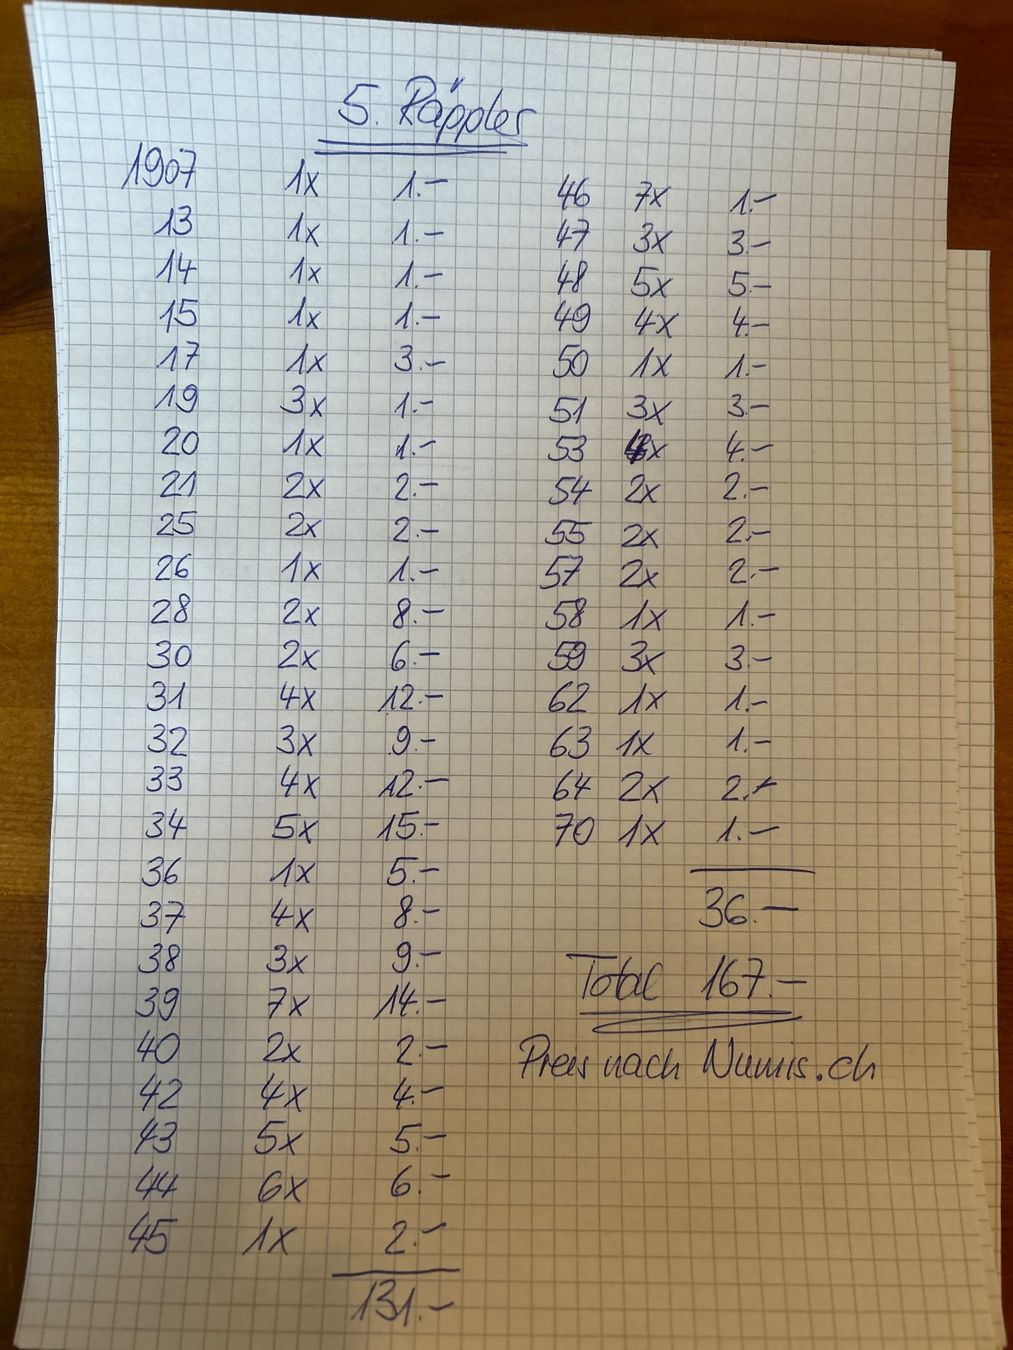 5. Räppler
1907 1x 1.-
13 1x 1.-
14 1x 1.-
15 1x 1.-
17 1x 3.-
19 3x 1.-
20 1x 1.-
21 2x 2.-
25 2x 2.-
26 1x 1.-
28 2x 8.-
30 2x 6.-
31 4x 12.-
32 3x 9.-
33 4x 12.-
34 5x 15.-
36 1x 5.-
37 4x 8.-
38 3x 9.-
39 7x 14.-
40 2x 2.-
42 4x 4.-
43 5x 5.-
44 6x 6.-
45 1x 2.-
131.-
46 7x 1.-
47 3x 3.-
48 5x 5.-
49 4x 4.-
50 1x 1.-
51 3x 3.-
53 4x 4.-
54 2x 2.-
55 2x 2.-
57 2x 2.-
58 1x 1.-
59 3x 3.-
62 1x 1.-
63 1x 1.-
64 2x 2.-
70 1x 1.-
36.-
Total 167.-
Preis nach Numis.ch